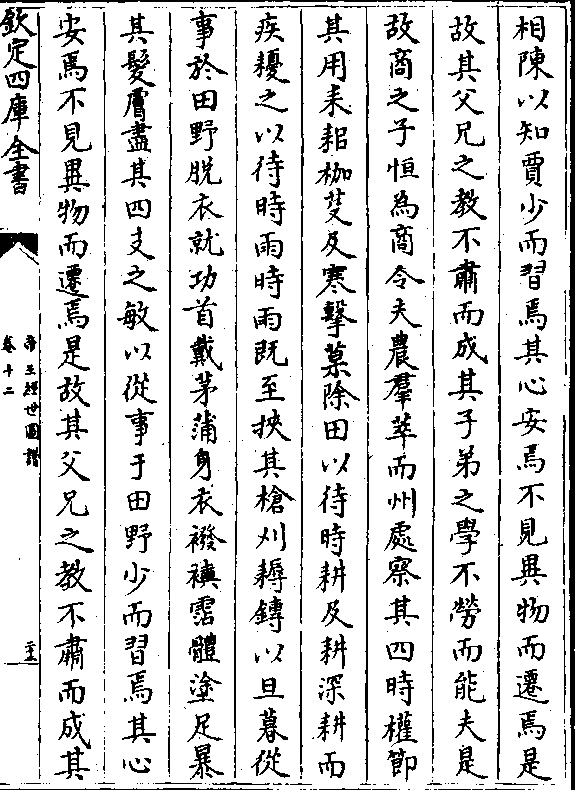 相陳以知賈少而習焉其心安焉不見異物而遷焉是
故其父兄之教不肅而成其子弟之學不勞而能夫是
故商之子恒為商令夫農羣萃而州處察其四時權節
其用耒耜枷芟及寒擊菒除田以待時耕及耕深耕而
疾耰之以待時雨時雨既至挾其槍刈耨鎛以旦暮從
事於田野脱衣就功首戴茅蒲身衣襏襫霑體塗足暴
其髮膚盡其四支之敏以從事于田野少而習焉其心
安焉不見異物而遷焉是故其父兄之教不肅而成其
欽定四庫全書
帝王經世圖譜
卷十二